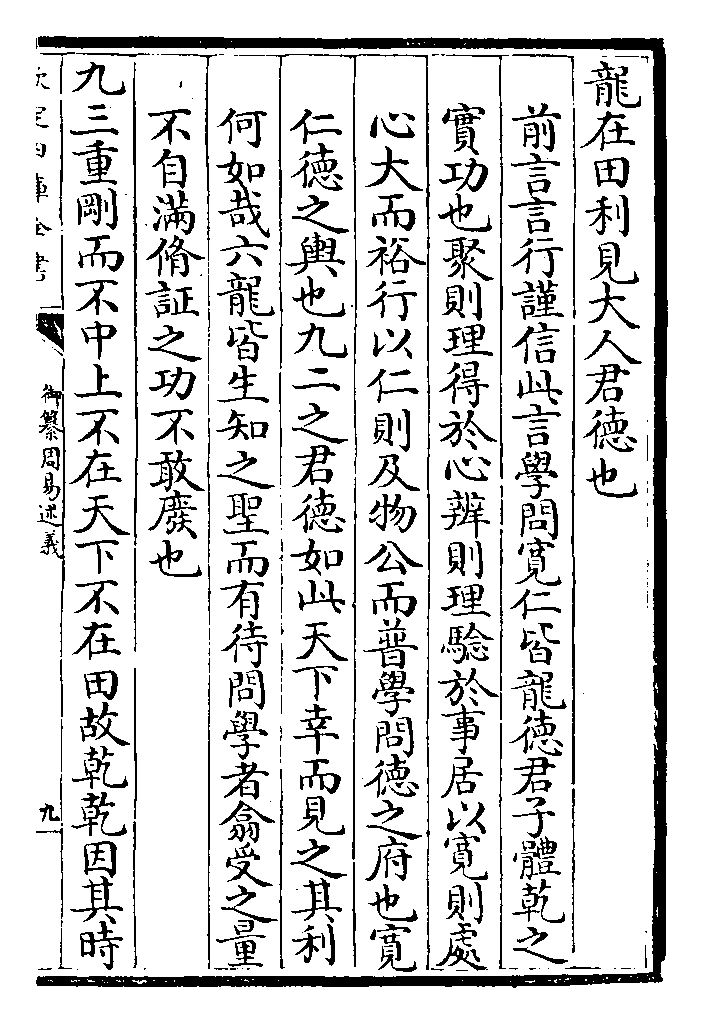 龍在田利見大人君徳也
前言言行謹信此言學問寛仁皆龍徳君子體乾之
實功也聚則理得於心辨則理驗於事居以寛則處
心大而裕行以仁則及物公而普學問徳之府也寛
仁徳之輿也九二之君徳如此天下幸而見之其利
何如哉六龍皆生知之聖而有待問學者翕受之量
不自滿脩証之功不敢廢也
九三重剛而不中上不在天下不在田故乾乾因其時
欽定四庫全書
御纂周易述義
九